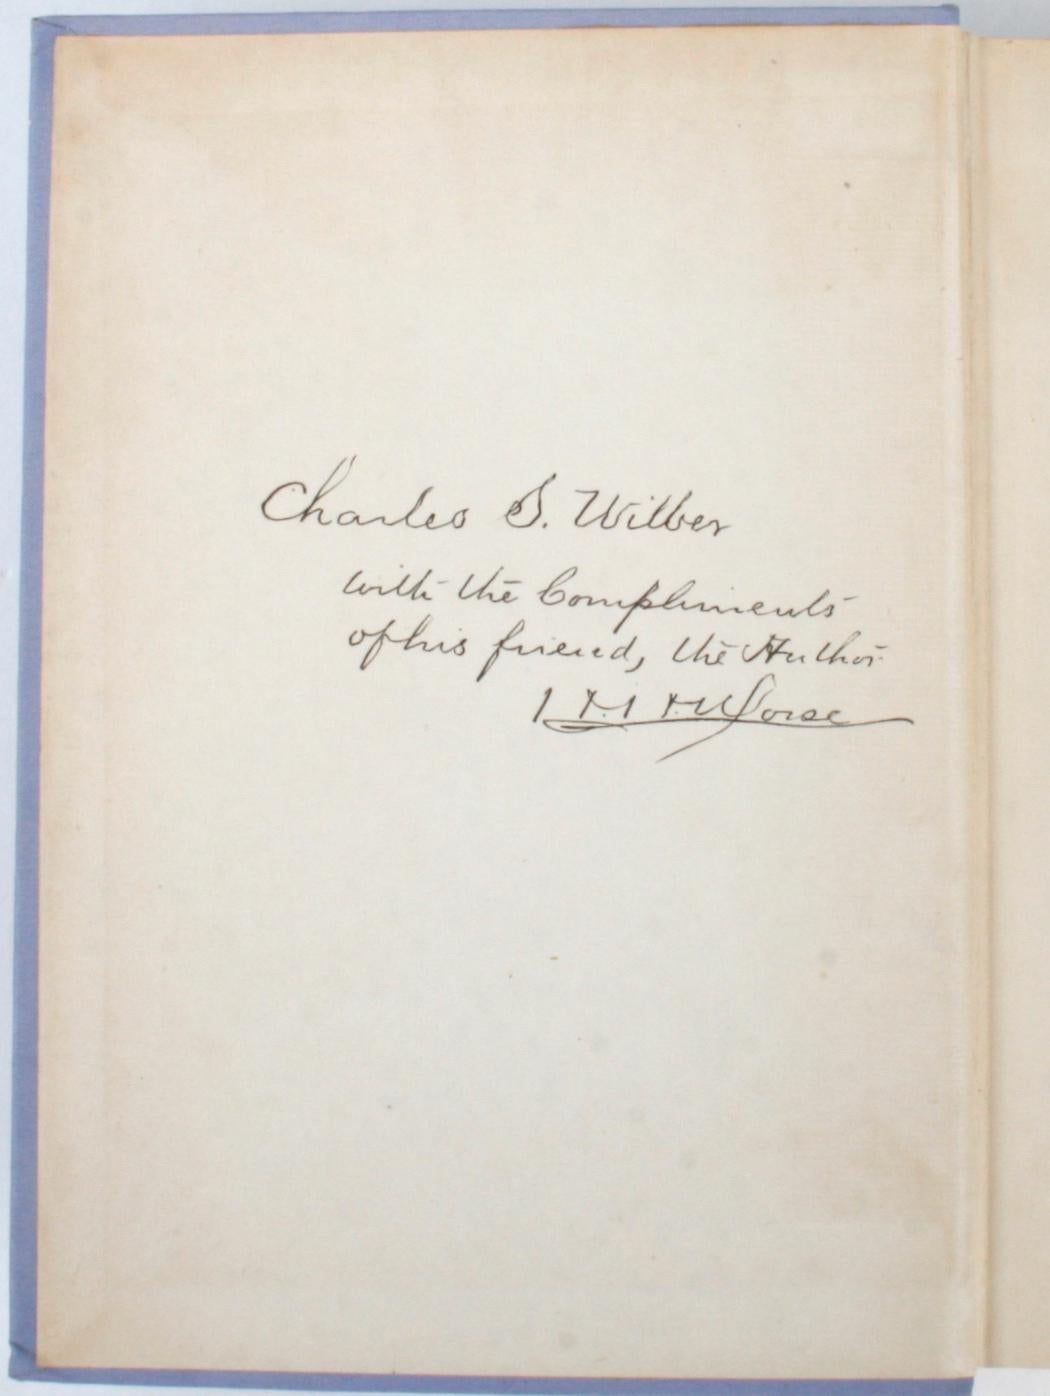 Charles S. Wilber
with the Compliments
of his friend, the Author